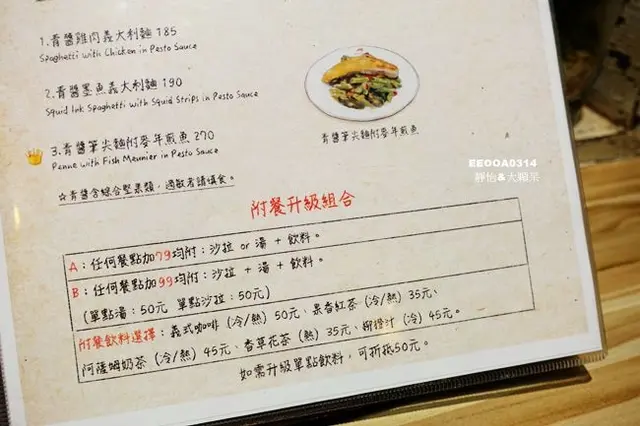 1.青醬雞肉義大利麵 185
Spaghetti with Chicken in Pesto Sauce
2.青醬墨魚義大利麵 190
Squid Ink Spaghetti with Squid Strips in Pesto Sauce
3.青醬筆尖麵附麥年煎魚 270
Penne with Fish Meunier in Pesto Sauce
☆青醬含綜合堅果類，過敏者請慎食。
青醬筆尖麵附麥年煎魚
EEOOA0314
靜怡&大顆呆
附餐升級組合
A：任何餐點加79均附：沙拉 or 湯 + 飲料。
B：任何餐點加99均附：沙拉 + 湯 + 飲料。
(單點湯：50元 單點沙拉：50元)
附餐飲料選擇：義式咖啡 (冷/熱) 50元、果香紅茶 (冷/熱) 35元、
阿薩姆奶茶 (冷/熱) 45元、香草花茶 (熱) 35元、柳橙汁 (冷) 45元。
如需升級單點飲料，可折抵50元。